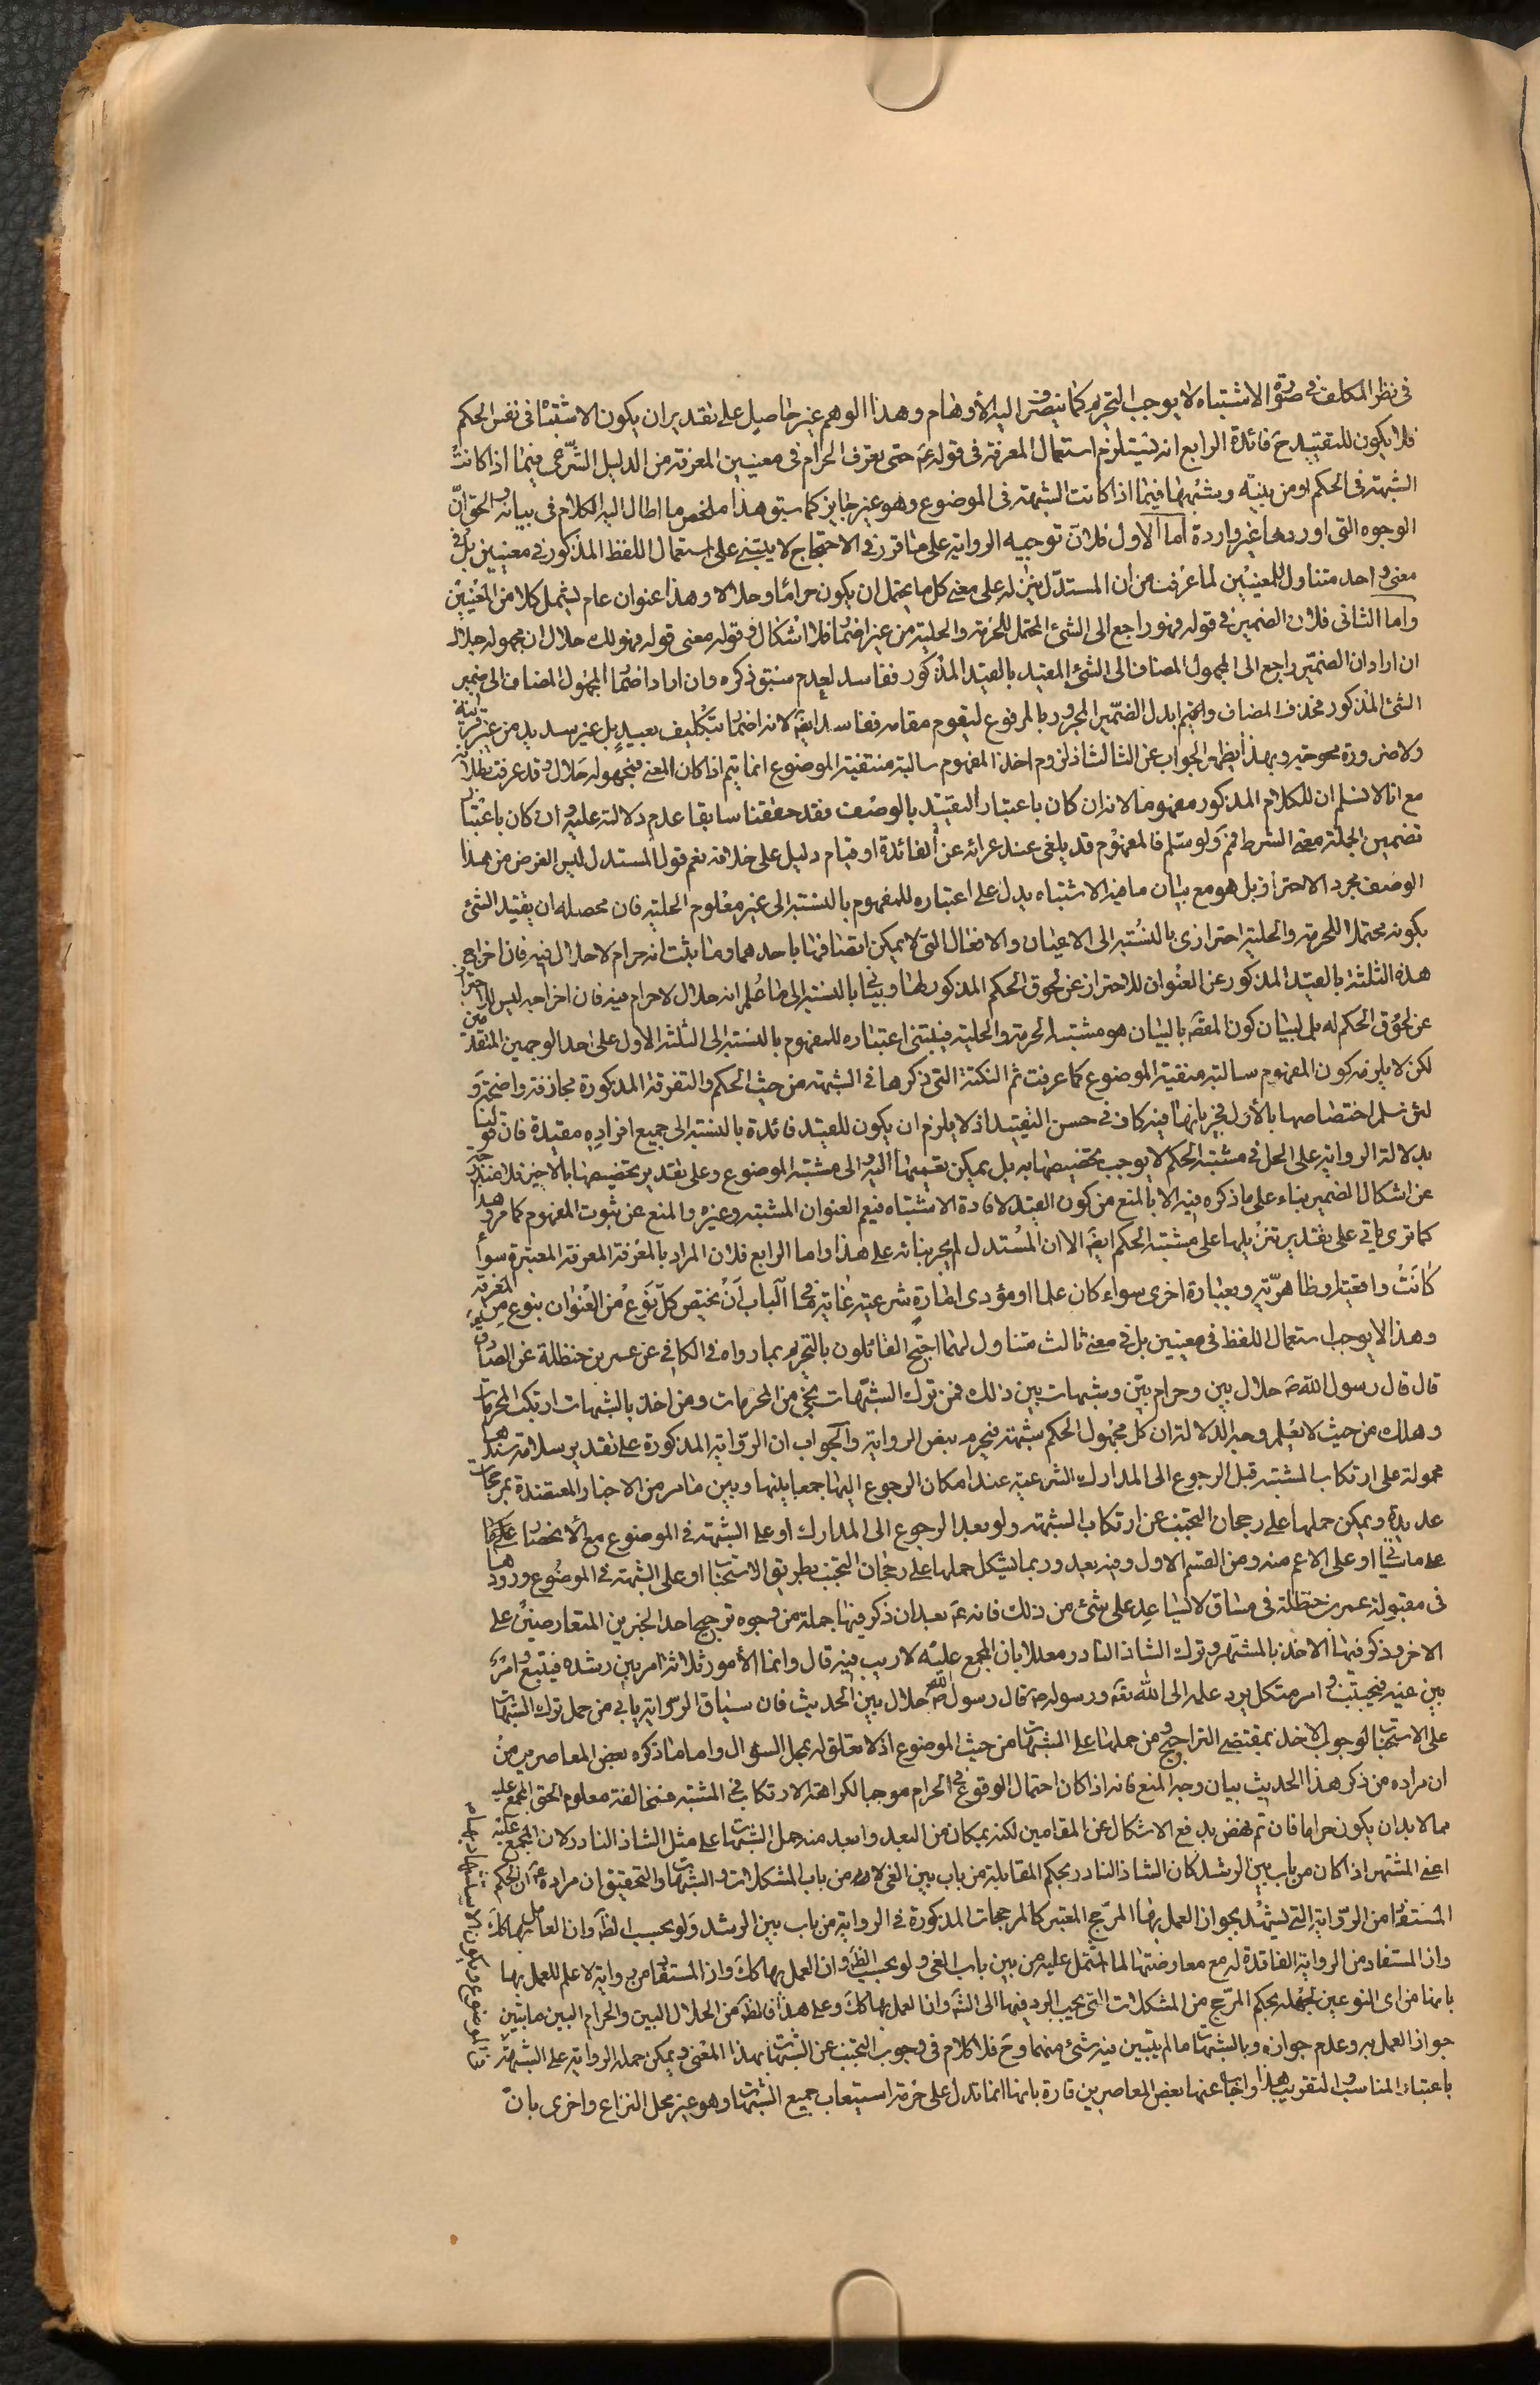 في نظر المكلف في صورة الاشتباه لا يوجب التحريم كما ينصرف اليه الأوهام وهذا الوهم غير حاصل على تقدير ان يكون الاشتباه في نفس الحكم
فلا يكون للتقييد ح فائدة الرابع انه يستلزم استعمال المعرفة في قوله ع حتى يعرف الحرام في معنيين المعرفة من الدليل الشرعي فيما اذا كانت
الشبهة في الحكم ومن بينه وشبهها فيما اذا كانت الشبهة في الموضوع وهو غير جايز كما سبق هذا ملخص ما اطال اليه الكلام في بيانه والحق ان
الوجوه التي اوردها غير واردة اما الاول فلان توجيه الرواية على ما قرر في الاحتجاج لا يبتني على استعمال اللفظ المذكور في معنيين بل في
معنى واحد متناول للمعنيين لما عرفت من ان المستدل ينزله على معنى كل ما يحتمل ان يكون حراما وحلالا وهذا عنوان عام يشمل كلا من المعنيين
واما الثاني فلان الضمير في قوله فهو راجع الى الشئ المحتمل للحرمة والحلية من غير اضمار فلا اشكال وقوله معنى قوله فهو لك حلال ان مجهوله حلال
ان اراد ان الضمير راجع الى المجهول المضاف الى الشئ المقيد بالقيد المذكور ففاسد لعدم سبق ذكره وان اراد اضمار المجهول المضاف الى ضمير
الشئ المذكور فحذف المضاف واقيم بدل الضمير المجرور بالمرفوع ليقوم مقامه ففاسد ايضا لانه اضمار بتكليف بعيد بل غير سديد من غير قرينة
ولا ضرورة محوجة وبهذا يظهر الجواب عن الثالث اذ لزوم اخذ المفهوم سالبة منتفية الموضوع انما يتم اذا كان المعنى فمجهوله حلال وقد عرفت بطلانه
مع انا لا نسلم ان للكلام المذكور مفهوما لانه ان كان باعتبار التقييد بالوصف فقد حققنا سابقا عدم دلالته عليه وان كان باعتبار
تضمين الجملة معنى الشرط فم ولو سلم فالمفهوم قد يلغى عند عرائه عن الفائدة او قيام دليل على خلافه نعم قول المستدل ليس الغرض من هذا
الوصف مجرد الاحتراز بل هو مع بيان ما فيه الاشتباه يدل على اعتباره للمفهوم بالنسبة الى غير معلوم الحلية فان محصله ان تقييد الشئ
بكونه محتملا للحرمة والحلية احترازي بالنسبة الى الاعيان والافعال التي لا يمكن اتصافها باحدهما وما ثبت انه حرام لا حلال فيه فان اخراج
هذه الثلثة بالقيد المذكور عن العنوان للاحتراز عن لحوق الحكم المذكور لها وبياني بالنسبة الى ما علم انه حلال لا حرام فيه فان اخراجه ليس للاحتراز
عن لحوق الحكم له بل لبيان كون المقصود بالبيان هو مشتبه الحرمة والحلية فيبتني اعتباره للمفهوم بالنسبة الى الثلثة الاول على احد الوجهين المتقدمين
لكن لا يلزمه كون المفهوم سالبة منتفية الموضوع كما عرفت ثم النكتة التي ذكرها في الشبهة من حيث الحكم والتفرقة المذكورة مجازفة واضحة و
لئن سلم اختصاصها بالأول فجريانها فيه كاف في حسن التقييد اذ لا يلزم ان يكون للقيد فائدة بالنسبة الى جميع افراده مقيدة فان قولنا
بدلالة الرواية على الحل في مشتبه الحكم لا يوجب تخصيصها به بل يمكن تعميمها اليه والى مشتبه الموضوع وعلى تقدير تخصيصها بالاخير فلا مندوحة
عن اشكال الضمير بناء على ما ذكره فيه الا بالمنع من كون القيد لافادة الاشتباه فيعم العنوان المشتبه وغيره والمنع عن ثبوت المفهوم كما مر وهذا
كما ترى ياتي على تقدير تنزيلها على مشتبه الحكم ايضا الا ان المستدل لم يجر بنائه على هذا واما الرابع فلان المراد بالمعرفة المعرفة المعتبرة سواء
كانت واقعية او ظاهرية وبعبارة اخرى سواء كان علما او مؤدى امارة شرعية غاية ما في الباب ان يختص كل نوع من العنوان بنوع من المعرفة
وهذا لا يوجب استعمال اللفظ في معنيين بل في معنى ثالث متناول لهما احتج القائلون بالتحريم بما رواه في الكافي عن عمر بن حنظلة عن الصادق ع
قال قال رسول الله ص حلال بين وحرام بين وشبهات بين ذلك فمن ترك الشبهات نجى من المحرمات ومن اخذ بالشبهات ارتكب المحرمات
وهلك من حيث لا يعلم وجه الدلالة ان كل مجهول الحكم شبهة فيحرم بنص الرواية والجواب ان الرواية المذكورة على تقدير سلامة سندها
محمولة على ارتكاب المشتبه قبل الرجوع الى المدارك الشرعية عند امكان الرجوع اليها جمعا بينها وبين ما مر من الاخبار المعتضدة بمرجحات
عديدة ويمكن حملها على رجحان التجنب عن ارتكاب الشبهة ولو بعد الرجوع الى المدارك او على الشبهة في الموضوع مع الانحصار على كلها
على ما ياتي او على الاعم منه ومن القسم الاول وفيه بعيد وربما يشكل حملها على رجحان التجنب بطريق الاستحباب او على الشبهة في الموضوع ورودها
في مقبولة عمر بن حنظلة في مساق لا يساعد على شئ من ذلك فانه ع بعد ان ذكر فيها جملة من وجوه ترجيح احد الخبرين المتعارضين على
الاخر وذكر فيها الاخذ بالمشتهر وترك الشاذ النادر معللا بان المجمع عليه لا ريب فيه قال وانما الأمور ثلاثة امر بين رشده فيتبع وامر
بين غيه فيجتنب وامر مشكل يرد علمه الى الله تعه ورسوله ص قال رسول الله ص حلال بين الحديث فان سياق الرواية يابى من حمل ترك الشبهات
على الاستحباب لوجوب الاخذ بمقتضى التراجيح ومن حملها على الشبهات من حيث الموضوع اذ لا تعلق له بمحل السؤال واما ما ذكره بعض المعاصرين من
ان مراده من ذكر هذا الحديث بيان وجه المنع فانه اذا كان احتمال الوقوع في الحرام موجبا لكراهة الارتكاب في المشتبه فمخالفة معلوم الحق المجمع عليه
مما لابد ان يكون حراما فان تم نهض بدفع الاشكال عن المقامين لكنه بمكان من البعد وابعد منه حمل الشبهات على مثل الشاذ النادر لان المجمع عليه
اعني المشتهر اذا كان من باب بين الرشد كان الشاذ النادر بحكم المقابلة من باب بين الغي لا من باب المشكلات والشبهات والتحقيق ان مراده ع ان الحكم
المستفاد من الرواية التي يشهد بجواز العمل بها المرجح المعتبر كالمرجحات المذكورة في الرواية من باب بين الرشد ولو بحسب الظ وان العامل بها كك
وان المستفاد من الرواية الفاقدة له مع معارضتها لما اشتمل عليه من بين باب الغي ولو بحسب الظ وان العمل بها كك وان المستفاد من رواية لا علم للعمل بها
بانها من اى النوعين لجهله بحكم المرجح من المشكلات التي يجب الرد فيها الى الله وان العمل بها كك وعلى هذا فالظ من الحلال البين والحرام البين ما تبين
جواز العمل به وعدم جوازه وبالشبهات ما لم يتبين فيه شئ منهما وح فلا كلام في وجوب التجنب عن الشبهات بهذا المعنى ويمكن حمله الرواية على الشبهة
في الموضوع ويكون الاستشهاد بها
باعتبار المناسبة والتقريب هذا واجاب عنها بعض المعاصرين تارة بانها انما تدل على حرمة استيعاب جميع الشبهات وهو غير محل النزاع واخرى بان